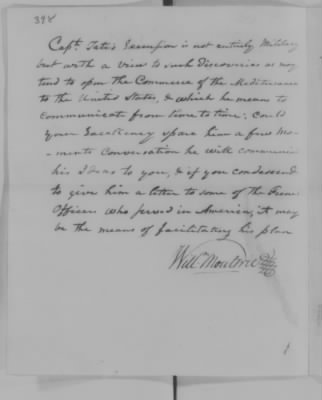 398
Capt. Tate's Excursion is not entirely Military
but with a view to such discoveries as may
tend to open the Commerce of the Mediterranea
to the United States, & which he means to
communicate from time to time; Could
your Excellency spare him a few mo-
ments Conversation he will communica
his Ideas to you, & if you condescend
to give him a letter to some of the Frenc
Officers who served in America, it may
be the means of facilitating his plan
Will: Moultrie